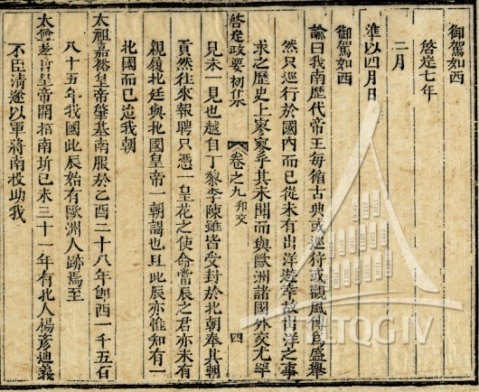 御駕如西
啓定七年
二月
準以四月日
御駕如西
諭曰我南歷代帝王每循古典或巡狩或觀風傳爲盛舉
然只巡行於國內而已從未有出洋遊幸故出洋之事
求之歷史上寥寥乎其未聞而與歐洲諸國外交尤罕
啓定政要初集 卷之九邦交 四
見未一見也越自丁黎李陳雖皆受封於北朝奉其朝
貢然往來報聘只憑一皇花之使命當辰之君亦未有
親履北廷與北國皇帝一朝謁也且此辰亦惟知有一
北國而已迨我朝
太祖嘉裕皇帝肇基南服於乙酉二十八年卽西一千五百
八十五年我國此辰始有歐洲人跡焉至
太宗孝哲皇帝開拓南圻己未三十一年有北人楊彥迪義
不臣清遂以軍將南投助我
LTQG IV